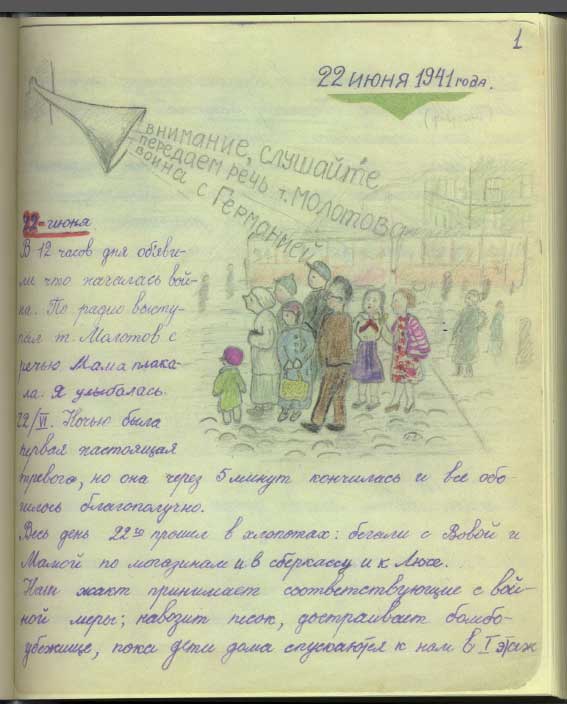 1
22 ИЮНЯ 1941 года.
ВНИМАНИЕ, СЛУШАЙТЕ
ПЕРЕДАЕМ РЕЧЬ т. МОЛОТОВА
ВОЙНА С ГЕРМАНИЕЙ
22-июня
В 12 часов дня объяви-
ли что началась вой-
на. По радио высту-
пал т. Молотов с
речью Мама плака-
ла. Я улыбалась.
22/VI. Ночью была
первая настоящая
тревога, но она через 5 минут кончилась и все обо-
шлось благополучно.
Весь день 22го прошел в хлопотах: бегали с Вовой и
Мамой по магазинам и в сберкассу и к Люсе.
Наш жакт принимает соответствующие с вой-
ной меры; навозит песок, достраивает бомбо-
убежище, пока дети дома спускаются к нам в I этаж